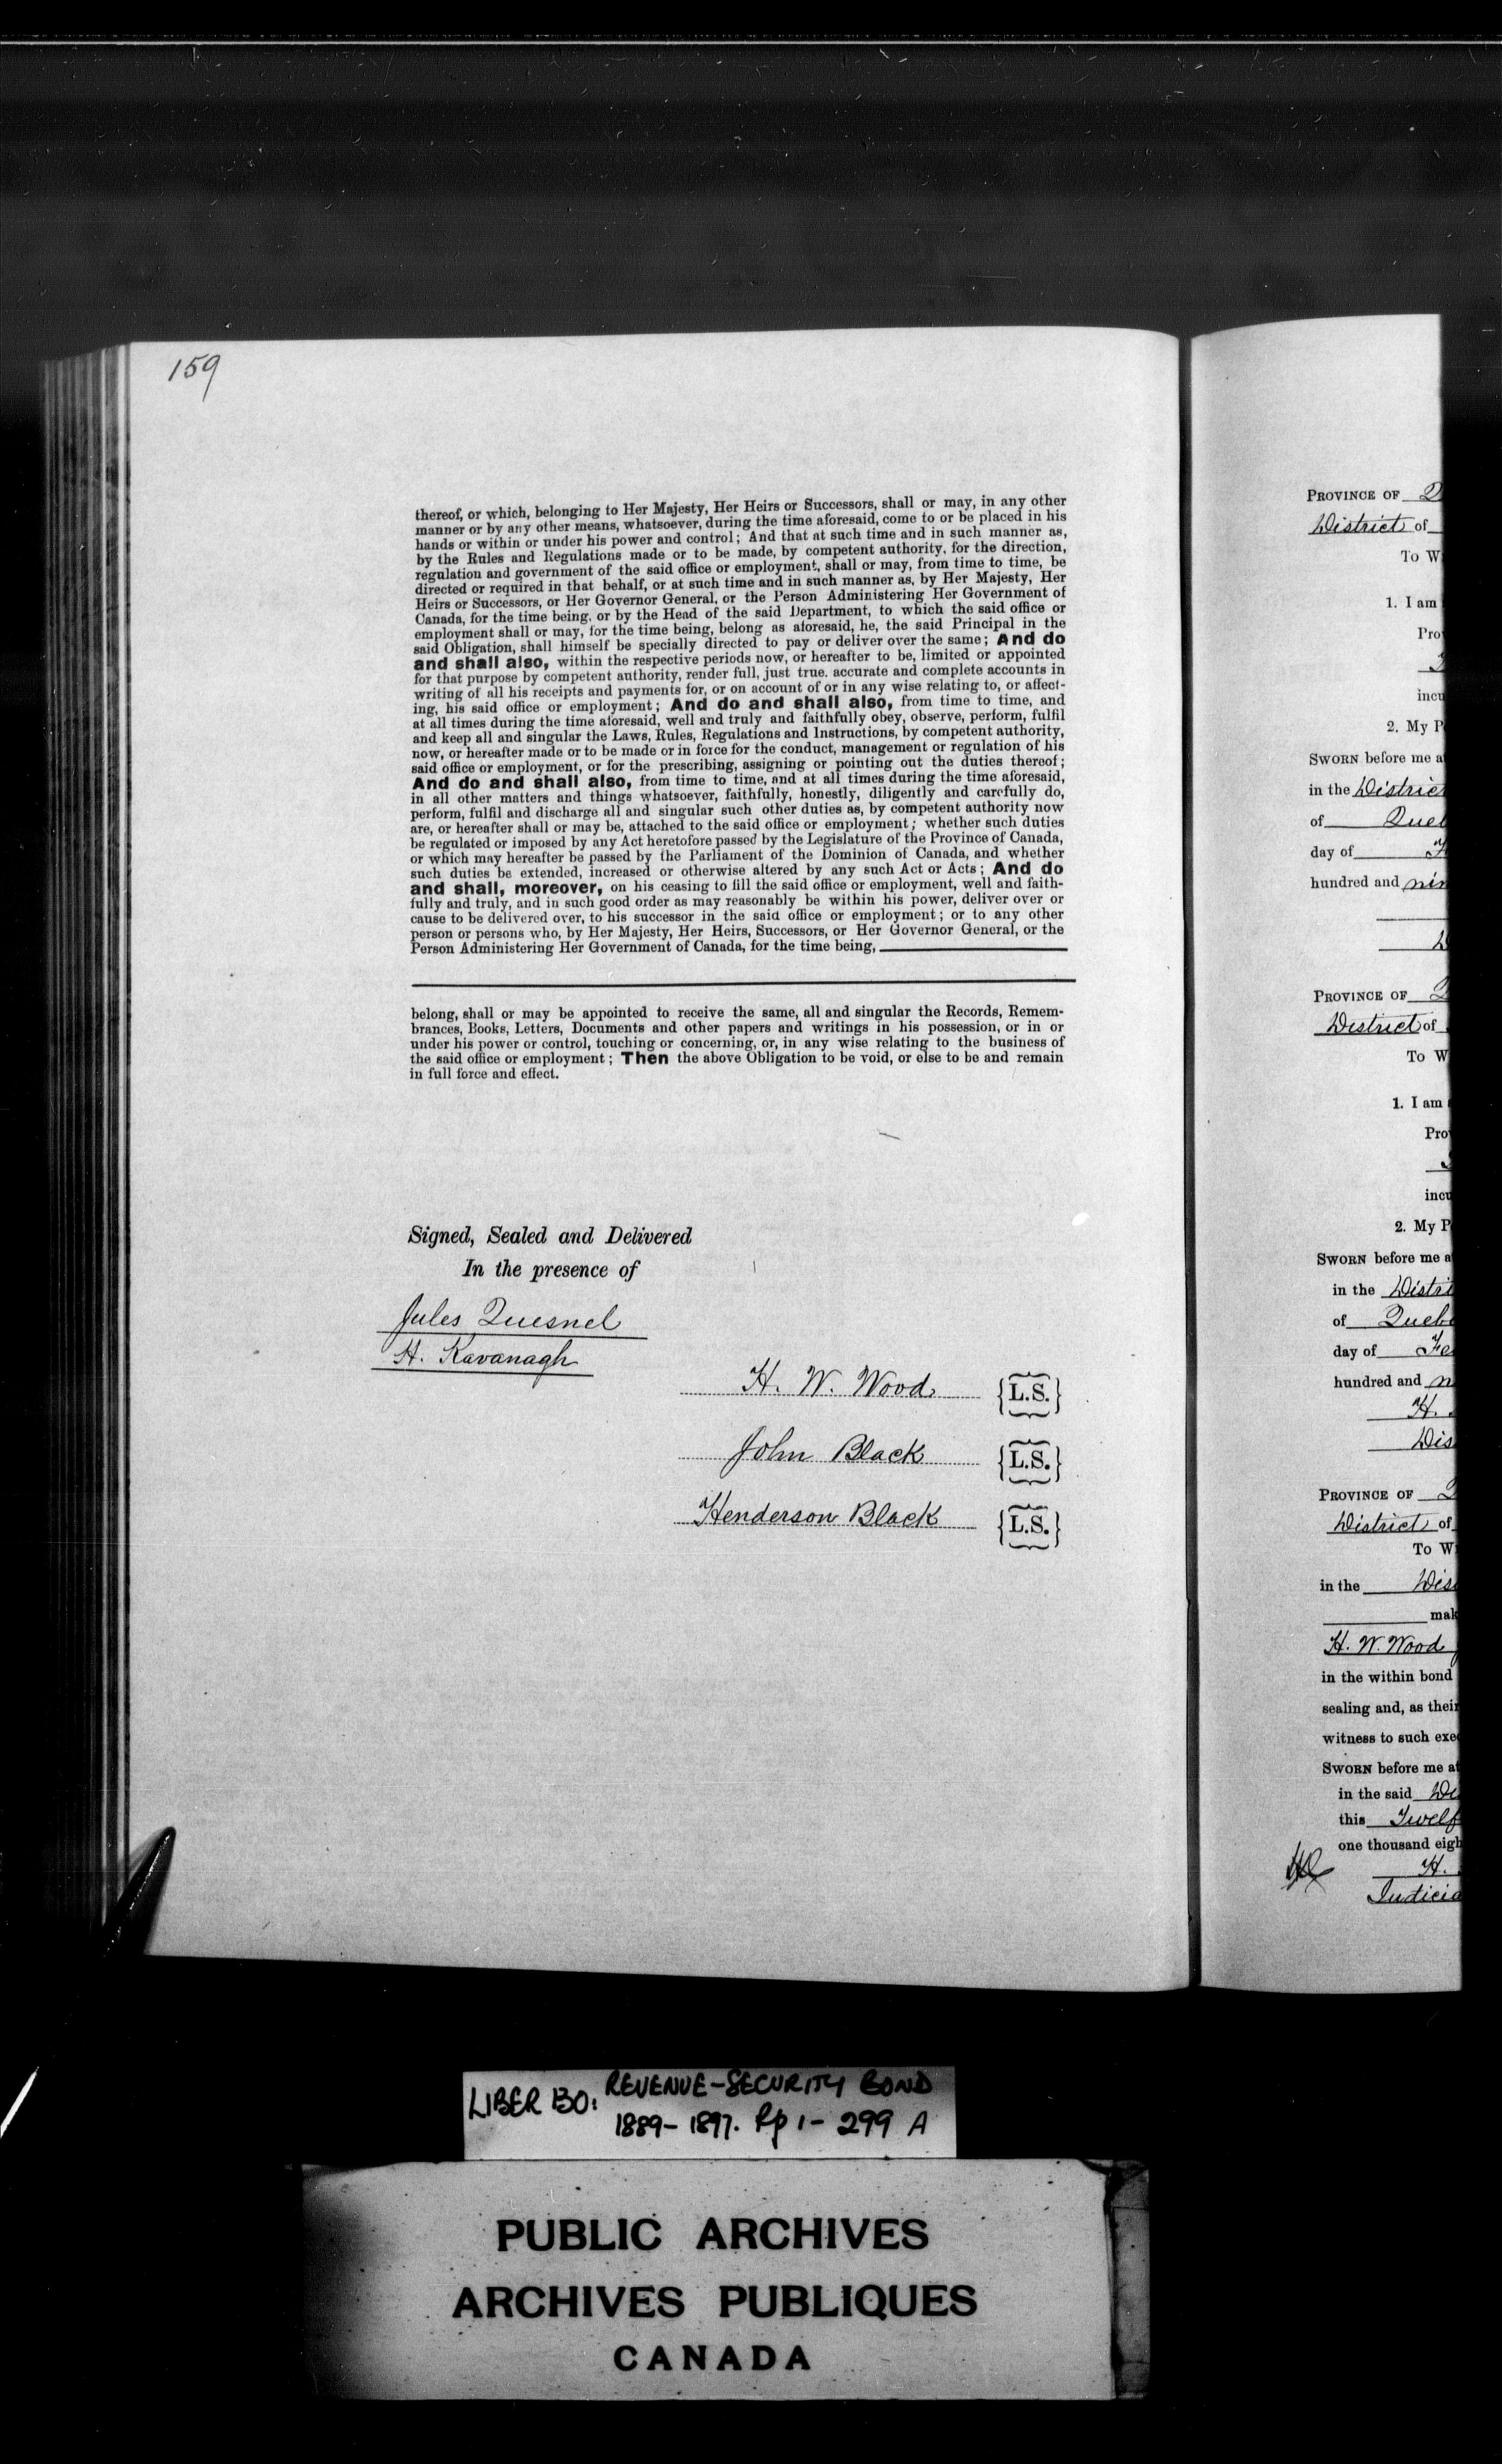 159
thereof, or which, belonging to Her Majesty, Her Heirs or Successors, shall or may, in any other
manner or by any other means, whatsoever, during the time aforesaid, come to or be placed in his
hands or within or under his power and control; And that at such time and in such manner as,
by the Rules and Regulations made or to be made, by competent authority, for the direction,
regulation and government of the said office or employment, shall or may, from time to time, be
directed or required in that behalf, or at such time and in such manner as, by Her Majesty, Her
Heirs or Successors, or Her Governor General, or the Person Administering Her Government of
Canada, for the time being, or by the Head of the said Department, to which the said office or
employment shall or may, for the time being, belong as aforesaid, he, the said Principal in the
said Obligation, shall himself be specially directed to pay or deliver over the same; And do
and shall also, within the respective periods now, or hereafter to be, limited or appointed
for that purpose by competent authority, render full, just true. accurate and complete accounts in
writing of all his receipts and payments for, or on account of or in any wise relating to, or affect-
ing, his said office or employment; And do and shall also, from time to time, and
at all times during the time aforesaid, well and truly and faithfully obey, observe, perform, fulfil
and keep all and singular the Laws, Rules, Regulations and Instructions, by competent authority,
now, or hereafter made or to be made or in force for the conduct, management or regulation of his
said office or employment, or for the prescribing, assigning or pointing out the duties thereof;
And do and shall also, from time to time, and at all times during the time aforesaid,
in all other matters and things whatsoever, faithfully, honestly, diligently and carefully do,
perform, fulfil and discharge all and singular such other duties as, by competent authority now
are, or hereafter shall or may be, attached to the said office or employment; whether such duties
be regulated or imposed by any Act heretofore passed by the Legislature of the Province of Canada,
or which may hereafter be passed by the Parliament of the Dominion of Canada, and whether
such duties be extended, increased or otherwise altered by any such Act or Acts; And do
and shall, moreover, on his ceasing to fill the said office or employment, well and faith-
fully and truly, and in such good order as may reasonably be within his power, deliver over or
cause to be delivered over, to his successor in the said office or employment; or to any other
person or persons who, by Her Majesty, Her Heirs, Successors, or Her Governor General, or the
Person Administering Her Government of Canada, for the time being,
belong, shall or may be appointed to receive the same, all and singular the Records, Remem-
brances, Books, Letters, Documents and other papers and writings in his possession, or in or
under his power or control, touching or concerning, or, in any wise relating to the business of
the said office or employment; Then the above Obligation to be void, or else to be and remain
in full force and effect.
Signed, Sealed and Delivered
In the presence of
Jules Quesnel
H. Kavanagh
H. W. Wood {L.S.}
John Black {L.S.}
Henderson Black {L.S.}
PROVINCE OF
District of
To W
1. I am
Pro
incu
2. My P
SWORN before me a
in the Distric
of Queb
day of
hundred and nin
PROVINCE OF
District of
To W
1. I am
Pro
incu
2. My P
SWORN before me a
in the Distri
of Queb
day of Fe
hundred and n
H.
Dis
PROVINCE OF
District of
To W
in the Dis
mak
H. W. Wood
in the within bond
sealing and, as their
witness to such exe
SWORN before me at
in the said
this Twelf
one thousand eigh
H.
Judicia
LIBER 130: REVENUE-SECURITY BOND
1889-1897. Pp 1-299 A
PUBLIC ARCHIVES
ARCHIVES PUBLIQUES
CANADA